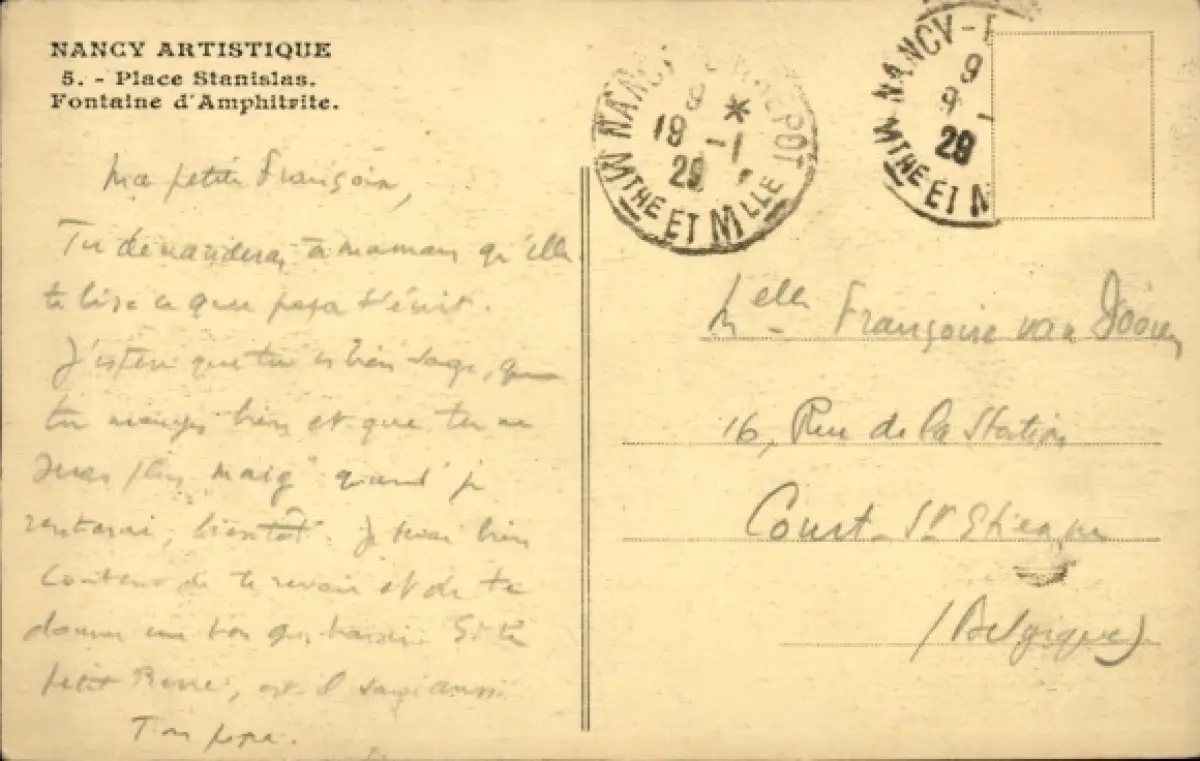 NANCY ARTISTIQUE
5. - Place Stanislas.
Fontaine d'Amphitrite.
NANCY-ENTREPOT
19 * 
9 -1
29
MTHE ET MLLE
NANCY-
9
9 -
29
MTHE ET M
Ma petite Françoise,
Tu demanderas à maman qu'elle
te lise ce que papa t'écrit.
J'espère que tu es bien sage, que
tu manges bien et que tu ne
seras plus maigre quand je
rentrerai, bientôt. Je serai bien
content de te revoir et de te
donner un bon gros
petit Pierre, est-il sage aussi
Ton papa.
Melle Françoise van
16, Rue de la Station
Court-St Etienne
(Belgique)